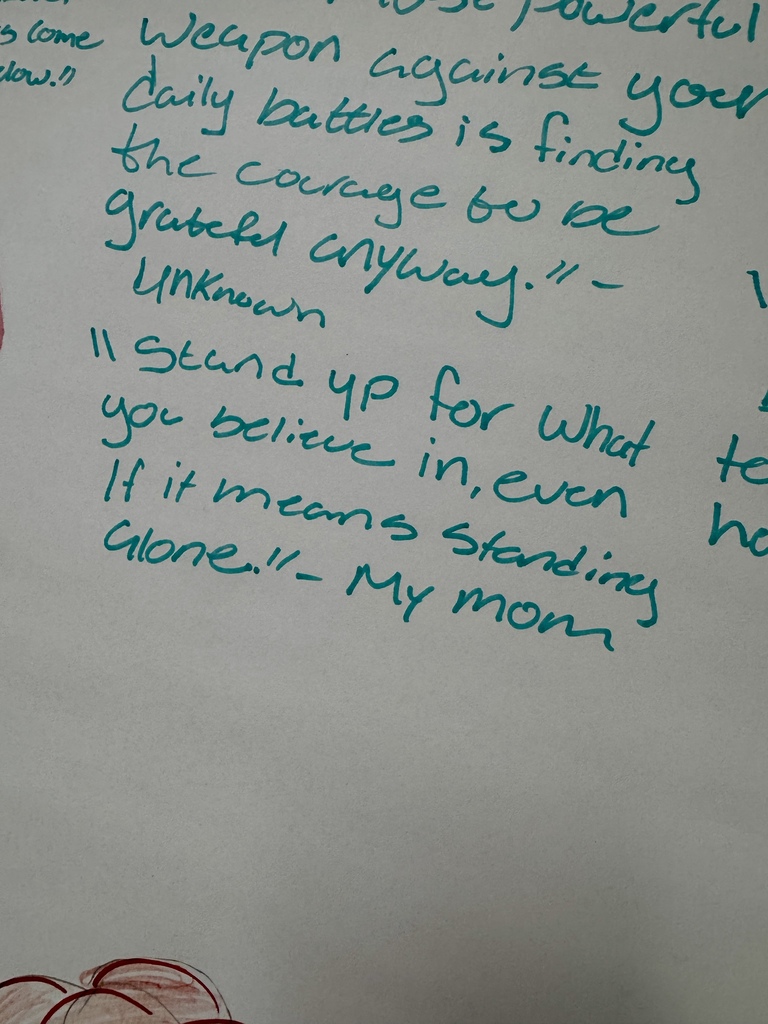 s come
low."
powerful
weapon against your
daily battles is finding
the courage to be
grateful anyway." -
Unknown
"Stand up for what
you believe in, even
If it means standing
Alone." - My mom
te
ho